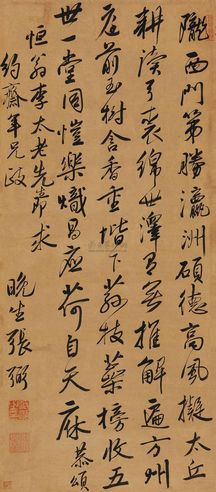 隴西門第勝瀛洲碩德高風擬太丘
耕讀弓裘綿世澤胥無推解遍方州
庭前玉樹含香重堦下荔枝蘂榜收五
世一堂同愷樂熾昌應荷自天庥 恭頌
恒翁李太老先生 求
約齋年兄政
晚生張弼